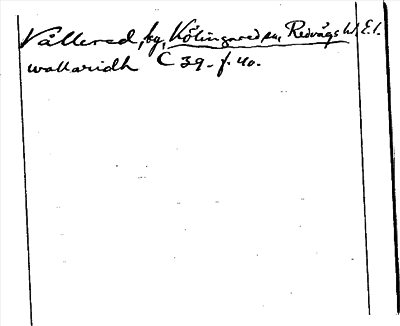 Vållered, by, Kölingared sn, Redvägs hd. E.l.
wallaridh C 39. f. 40.